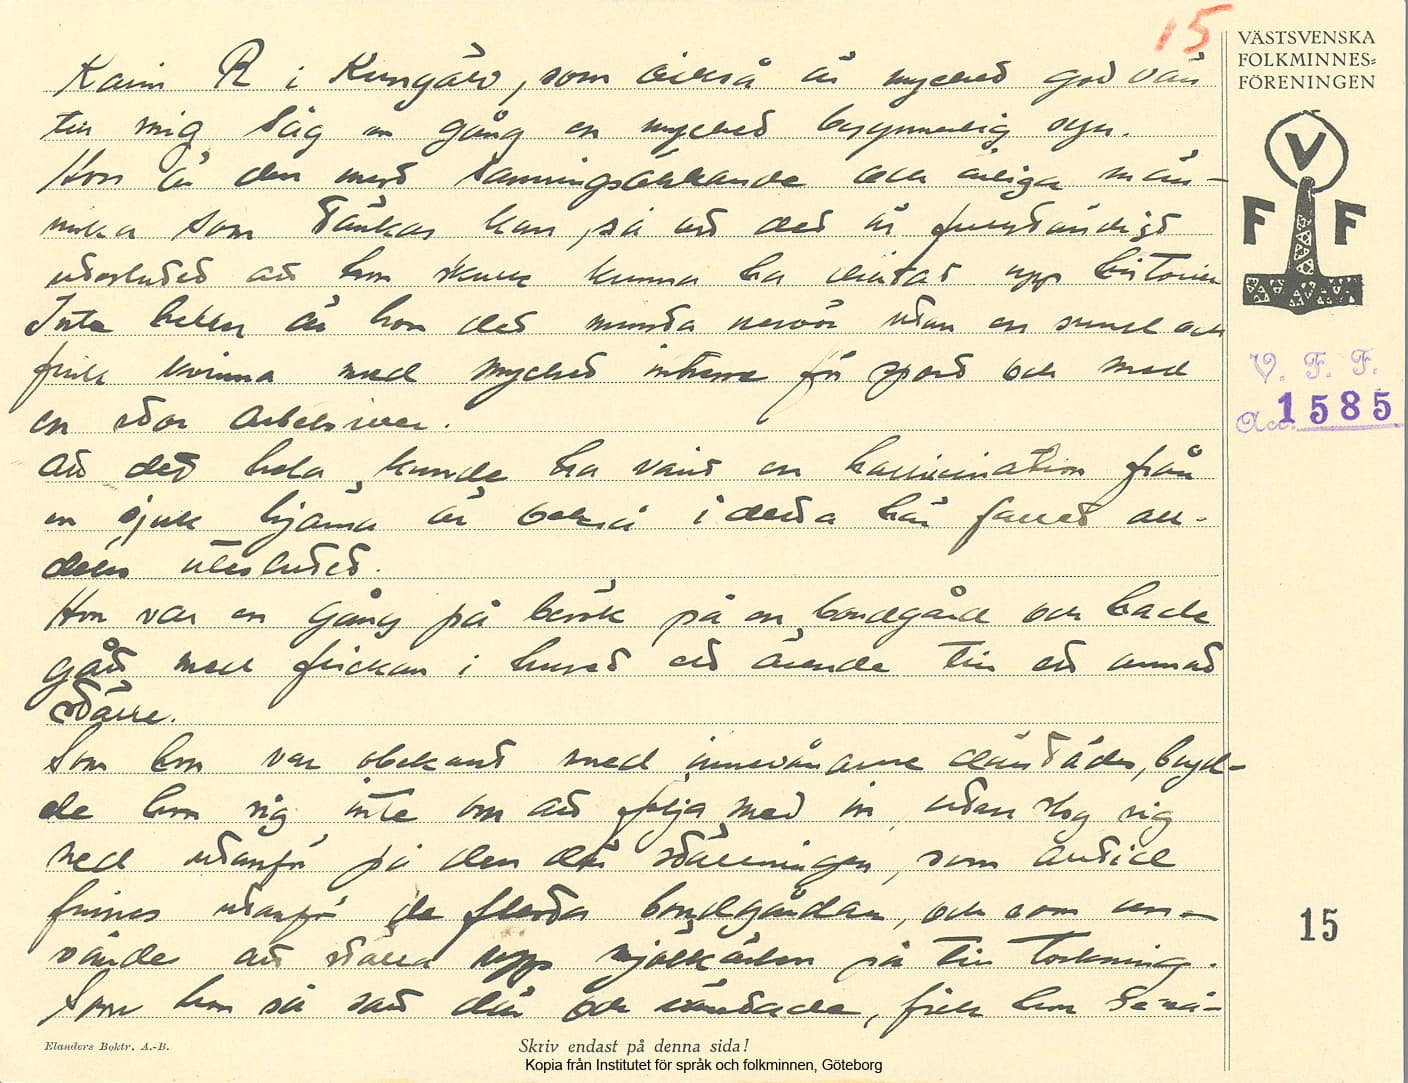 15
VÄSTSVENSKA
FOLKMINNES=
FÖRENINGEN
V
F F
V. F. F.
Acc. 1585
Karin R i Kungälv, som också är mycket god vän
till mig såg en gång en mycket besynnerlig syn.
Hon är den mest sanningsälskande och ärliga män-
niska som tänkas kan, så att det är fullständigt
uteslutet att hon skulle kunna ha diktat upp historien
Inte heller är hon det minsta nervös utan en sund och
frisk kvinna med mycket intresse för sport och med
en stor arbetsiver.
Att det hela kunde ha varit en hallucination från
en sjuk hjärna är också i detta här fallet all-
deles uteslutet.
Hon var en gång på besök på en bondgård och hade
gått med flickan i huset ett ärende till ett annat
ställe.
Som hon var obekant med innevånarne därstädes, bryd-
de hon sig inte om att följa med in, utan slog sig
ned utanför på den där ställningen, som alltid
finnes utanför de flesta bondgårdar, och som an-
vändes att ställa upp mjölkkärlen på till torkning.
Som hon så satt där och väntade, fick hon se nå-
15
Elanders Boktr. A.-B.
Skriv endast på denna sida!
Kopia från Institutet för språk och folkminnen, Göteborg